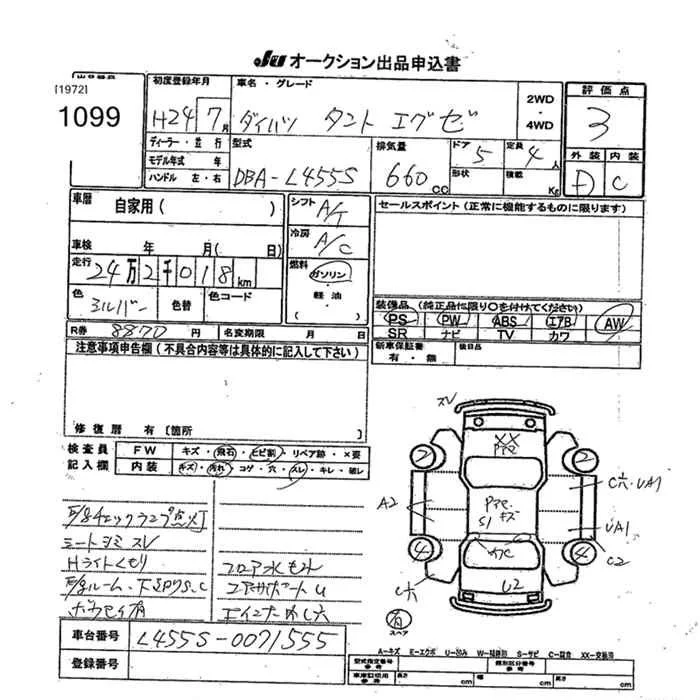 JU オークション出品申込書
出品番号
[1972]
1099
初度登録年月
H24 7月
車名・グレード
ダイハツ タント エグゼ
2WD
・
4WD
評価点
3
外装 内装
D C
ディーラー・並行
モデル年式 年
ハンドル 左・右
型式
DBA-L455S
排気量
660 cc
ドア 5
形状
定員 4人
積載 Kg
車歴
自家用 ( )
シフト
A/T
冷房
A/C
燃料
ガソリン
・
軽油
( )
車検 年 月 ( 日)
走行
24万2千018km
色
シルバー
色替
色コード
R券 8870円
名変期限 月 日
セールスポイント (正常に機能するものに限ります)
装備品 (純正品に限り○を付けてください)
PS PW ABS エアB AW
SR ナビ TV カワ
新車保証書
有・無
後日品
注意事項申告欄 (不具合内容等は具体的に記入して下さい)
修復歴 有 [箇所
検査員
記入欄
FW キズ・飛石・ヒビ割・リペア跡・×要
内装 キズ・汚れ・コゲ・穴・スレ・キレ・破レ
E/gチェックランプ点灯
シートシミ スレ
Hライトくもり
フロア
ルーム・下
コアサポート
車台番号
L455S-0071555
登録番号
XX
2
2
A2
C六・UA1
UA1
C2
4
4
C六
U2
有
スペア
A-キズ E-エクボ U-凹み W-補修跡 S-サビ C-腐食 XX-交換済
型式指定番号
参考
類別区分番号
参考
車庫証明用
参考
長さ cm
幅 cm
高さ cm